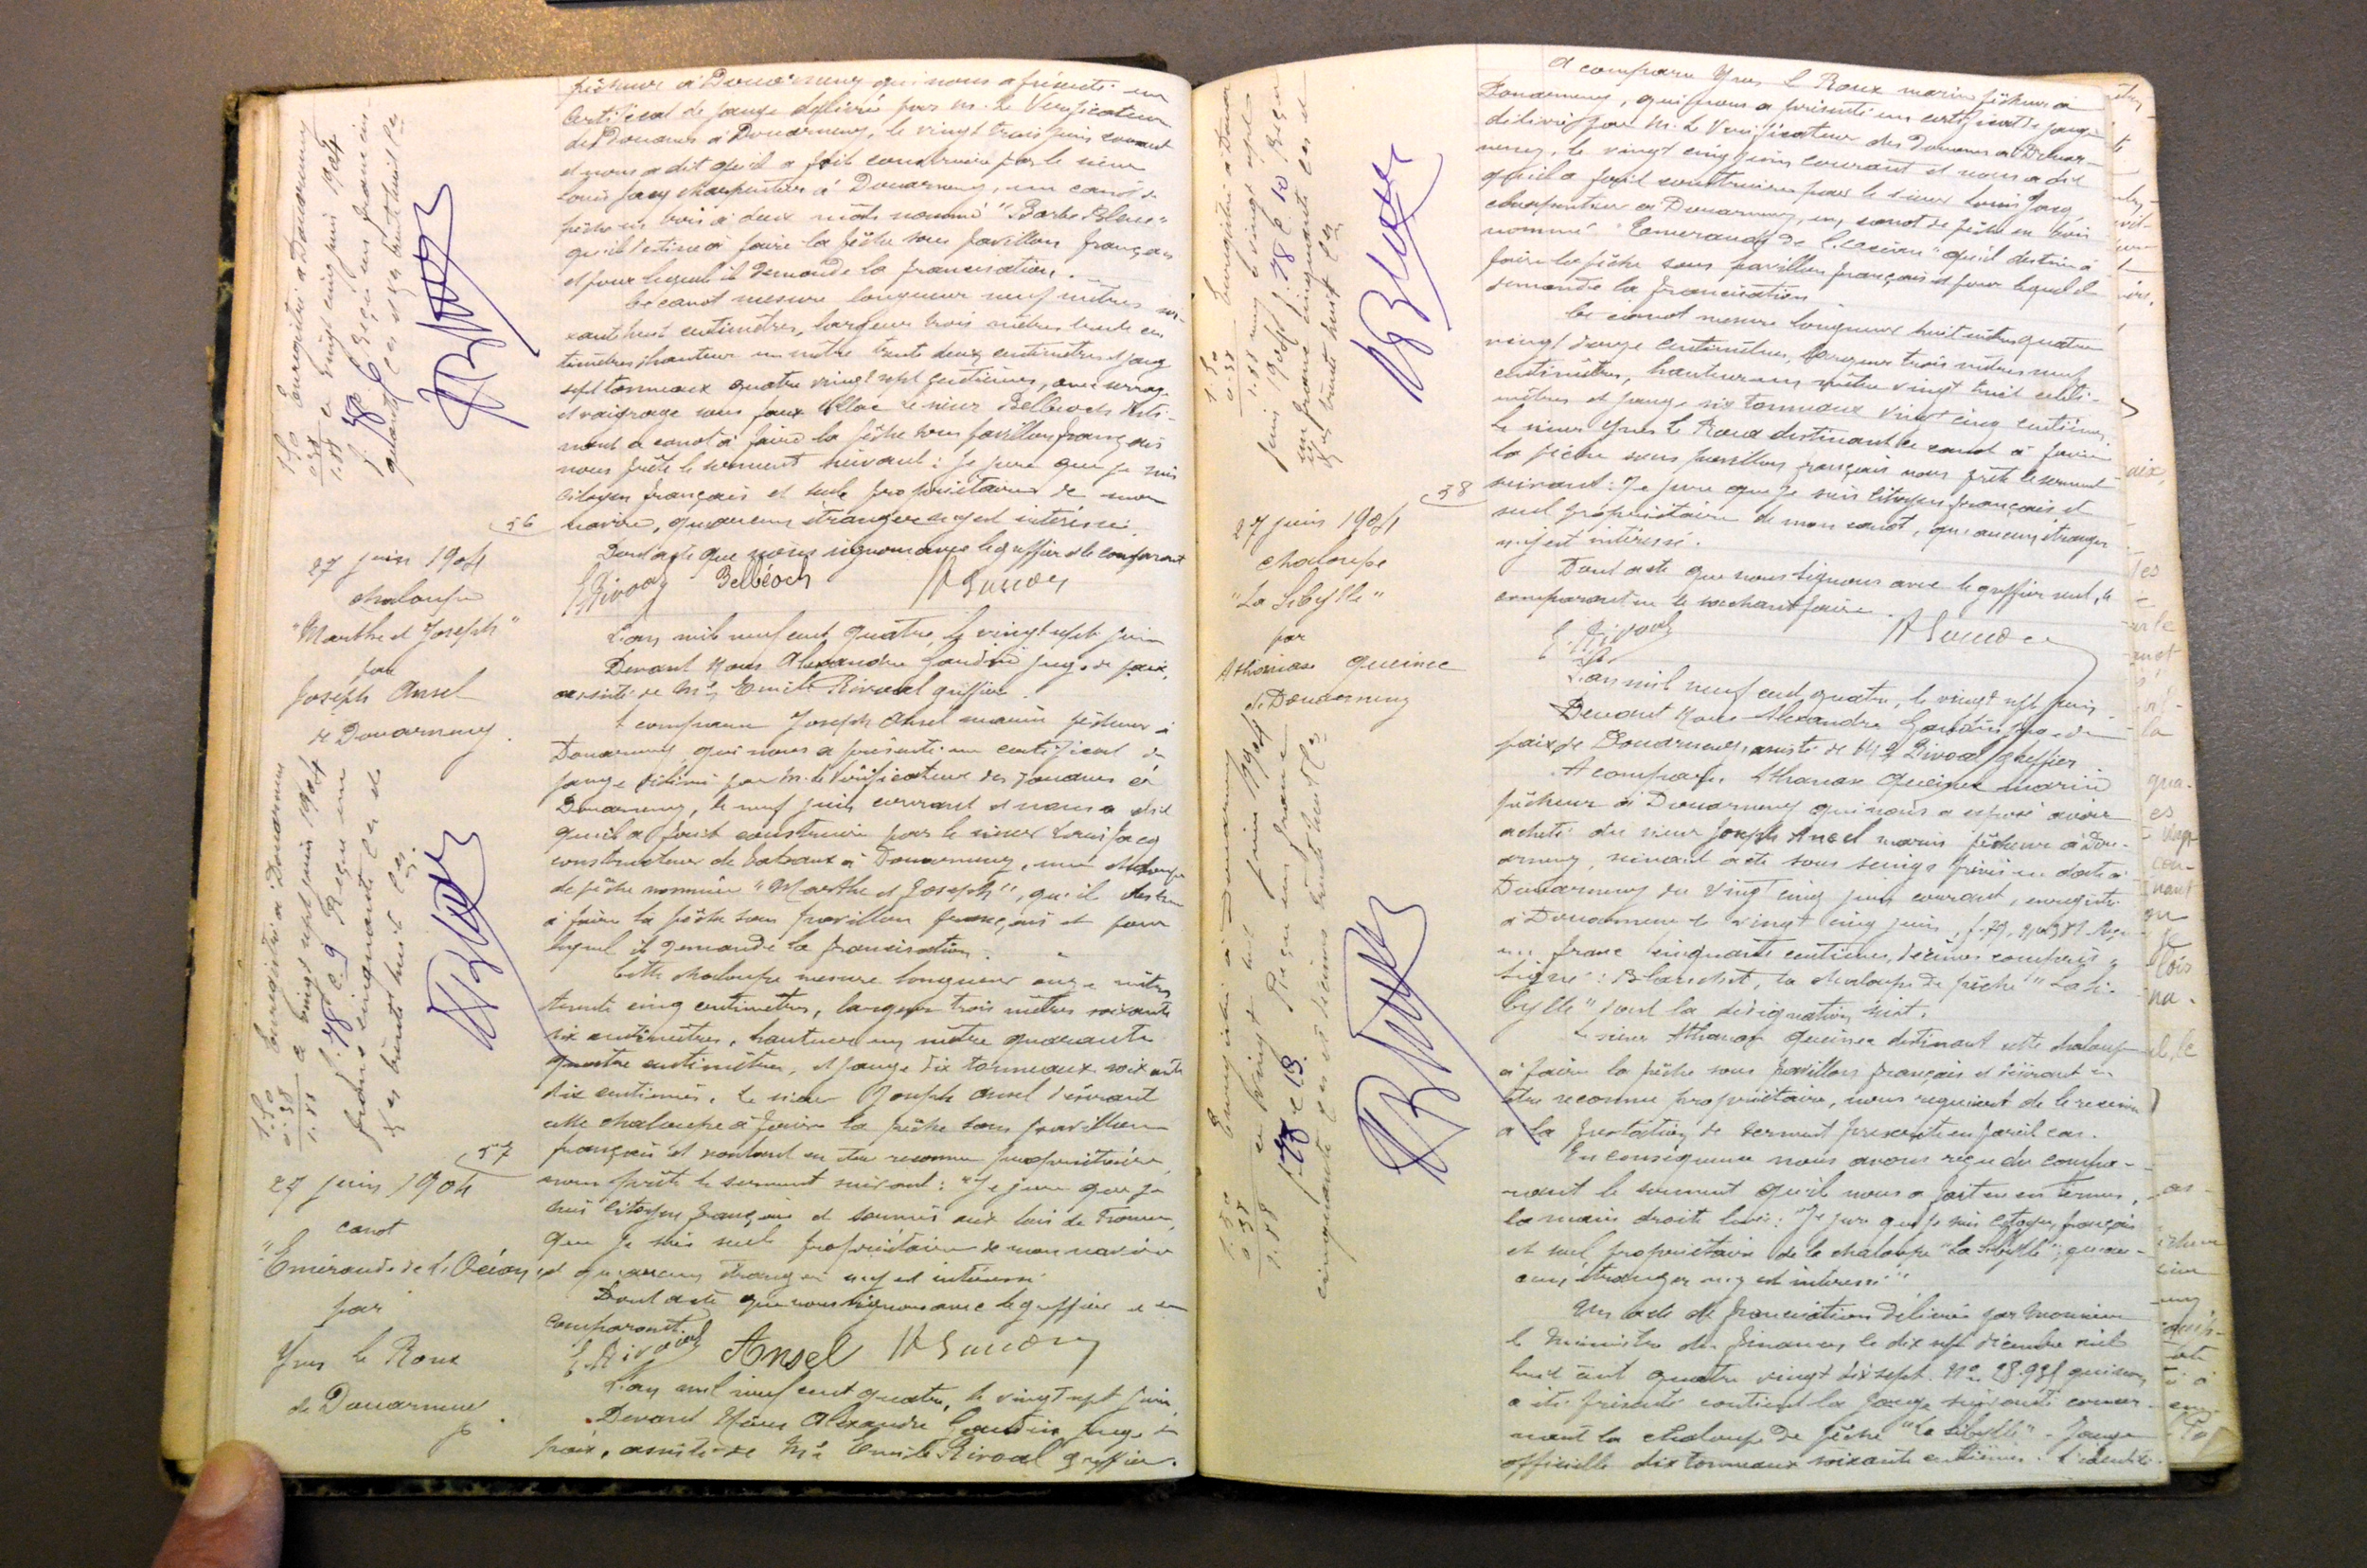 pêcheur à Douarnenez qui nous a présenté un
certificat de jauge délivré par M. le Vérificateur
des Douanes à Douarnenez, le vingt trois juin courant
et nous a dit qu'il a fait construire par le sieur
Louis Jacq charpentier à Douarnenez, un canot de
pêche en bois à deux mâts nommé "Barbe Bleue"
qu'il destine à faire la pêche sous pavillon français
et pour lequel il demande la francisation.
Ce canot mesure longueur neuf mètres soi-
xante huit centimètres, largeur trois mètres trente cen
timètres, hauteur un mètre trente deux centimètres et jauge
sept tonneaux quatre vingt sept centièmes, avec serrage
et vaigrage sous faux tillac Le sieur Belbeoch desti-
nant ce canot à faire la pêche sous pavillon français
nous prête le serment suivant: Je jure que je suis
citoyen français et seul propriétaire de mon
navire, qu'aucun étranger n'y est intéressé.
Dont acte que nous signons avec le greffier et le comparant
E. Rivoal Belbéoch A Gaudin
Enregistré à Douarnenez
le vingt cinq juin 1904
f. 78 c 6 Reçu un franc cin
quante ces et ces trente huit ces
1.50
0.38
1.88
56
27 juin 1904
chaloupe
"Marthe et Joseph"
par
Joseph Ansel
de Douarnenez.
L'an mil neuf cent quatre, le vingt sept juin
Devant Nous Alexandre Gaudin juge de paix,
assisté de Me Emile Rivoal greffier.
A comparu Joseph Ansel marin pêcheur à
Douarnenez, qui nous a présenté un certificat de
jauge délivré par M. le Vérificateur des Douanes à
Douarnenez, le neuf juin courant et nous a dit
qu'il a fait construire par le sieur Louis Jacq
constructeur de bateaux à Douarnenez, une chaloupe
de pêche nommée "Marthe et Joseph", qu'il destine
à faire la pêche sous pavillon français et pour
lequel il demande la francisation.
Cette chaloupe mesure longueur onze mètres
trente cinq centimètres, largeur trois mètres soixante
six centimètres, hauteur un mètre quarante
quatre centimètres, et jauge dix tonneaux soixante
dix centièmes. Le sieur Joseph Ansel désirant
cette chaloupe à faire la pêche sous pavillon
français et voulant en être reconnu propriétaire
nous prête le serment suivant: "Je jure que je
suis citoyen français et soumis aux lois de France,
que je suis seul propriétaire de mon navire
et qu'aucun étranger n'y est intéressé.
Dont acte que nous signons avec le greffier et le
comparant.
E. Rivoal Ansel A Gaudin
Enregistré à Douarnenez
le vingt sept juin 1904
f. 78 c 9 Reçu un
franc cinquante ces et
ces trente huit ces.
1.50
0.38
1.88
57
27 juin 1904
canot
"Emeraude de l'Océan"
par
Yves le Roux
de Douarnenez.
L'an mil neuf cent quatre, le vingt sept juin,
Devant Nous Alexandre Gaudin juge de
paix, assisté de Me Emile Rivoal greffier.
A comparu Yves le Roux marin pêcheur à
Douarnenez, qui nous a présenté un certificat de jauge
délivré par M. le Vérificateur des Douanes à Douar-
nenez, le vingt cinq juin courant et nous a dit
qu'il a fait construire par le sieur Louis Jacq,
charpentier à Douarnenez, un canot de pêche en bois
nommé "Emeraude de l'Océan" qu'il destine à
faire la pêche sous pavillon français et pour lequel il
demande la francisation.
Ce canot mesure longueur huit mètres quatre
vingt douze centimètres, largeur trois mètres neuf
centimètres, hauteur un mètre vingt huit centi-
mètres et jauge six tonneaux vingt cinq centièmes.
Le sieur Yves Le Roux destinant ce canot à faire
la pêche sous pavillon français nous prête le serment
suivant: Je jure que je suis citoyen français et
seul propriétaire de mon canot, qu'aucun étranger
n'y est intéressé.
Dont acte que nous signons avec le greffier seul, le
comparant ne le sachant faire.
E. Rivoal A Gaudin
Enregistré à Douar
nenez le vingt sept
juin 1904 f. 78 c. 10 Reçu
un franc cinquante ces et
ces trente huit ces
1.50
0.38
1.88
58
27 juin 1904
chaloupe
"La Sibylle"
par
Athanase Queinec
de Douarnenez
L'an mil neuf cent quatre, le vingt sept juin
Devant Nous Alexandre Gaudin, juge de
paix de Douarnenez, assisté de Me Rivoal greffier
A comparu Athanase Queinec marin
pêcheur à Douarnenez qui nous a exposé avoir
acheté du sieur Joseph Ansel marin pêcheur à Dou-
arnenez, suivant acte sous seings privés en date à
Douarnenez du vingt cinq juin courant, enregistré
à Douarnenez le vingt cinq juin, f. 79, Reçu
un franc cinquante centimes, décimes compris,
signé: Blanchet, la chaloupe de pêche "La Si-
bylle" dont la désignation suit.
Le sieur Athanase Queinec destinant cette chaloupe
à faire la pêche sous pavillon français et désirant en
être reconnu propriétaire, nous requiert de le recevoir
à la prestation de serment prescrite en pareil cas.
En conséquence nous avons reçu du compa-
rant le serment qu'il nous a fait en ces termes,
la main droite levée: "Je jure que je suis citoyen français
et seul propriétaire de la chaloupe "La Sibylle", qu'au-
cun étranger n'y est intéressé".
Un acte de francisation délivré par Monsieur
le Ministre des finances le dix sept décembre mil
huit cent quatre vingt dix sept. No 28.981 qui nous
a été présenté contient la jauge suivante concer-
nant la chaloupe de pêche "La Sibylle". Jauge
officielle dix tonneaux soixante centièmes. L'identité
Enregistré à Douarnenez
le vingt huit juin 1904
f. 78 c 13. Reçu un franc
cinquante ces et décimes trente huit ces
1.50
0.38
1.88